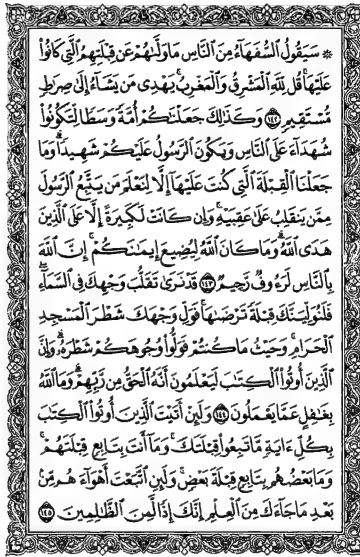 ۞ سَيَقُولُ السُّفَهَاءُ مِنَ النَّاسِ مَا وَلَّىٰهُمْ عَن قِبْلَتِهِمُ الَّتِي كَانُوا
عَلَيْهَا ۚ قُل لِّلَّهِ الْمَشْرِقُ وَالْمَغْرِبُ ۚ يَهْدِي مَن يَشَاءُ إِلَىٰ صِرَٰطٍ
مُّسْتَقِيمٍ ﴿١٤٢﴾ وَكَذَٰلِكَ جَعَلْنَٰكُمْ أُمَّةً وَسَطًا لِّتَكُونُوا
شُهَدَاءَ عَلَى النَّاسِ وَيَكُونَ الرَّسُولُ عَلَيْكُمْ شَهِيدًا ۗ وَمَا
جَعَلْنَا الْقِبْلَةَ الَّتِي كُنتَ عَلَيْهَا إِلَّا لِنَعْلَمَ مَن يَتَّبِعُ الرَّسُولَ
مِمَّن يَنقَلِبُ عَلَىٰ عَقِبَيْهِ ۚ وَإِن كَانَتْ لَكَبِيرَةً إِلَّا عَلَى الَّذِينَ
هَدَى اللَّهُ ۗ وَمَا كَانَ اللَّهُ لِيُضِيعَ إِيمَٰنَكُمْ ۚ إِنَّ اللَّهَ
بِالنَّاسِ لَرَءُوفٌ رَّحِيمٌ ﴿١٤٣﴾ قَدْ نَرَىٰ تَقَلُّبَ وَجْهِكَ فِي السَّمَاءِ ۖ
فَلَنُوَلِّيَنَّكَ قِبْلَةً تَرْضَىٰهَا ۚ فَوَلِّ وَجْهَكَ شَطْرَ الْمَسْجِدِ
الْحَرَامِ ۚ وَحَيْثُ مَا كُنتُمْ فَوَلُّوا وُجُوهَكُمْ شَطْرَهُ ۗ وَإِنَّ
الَّذِينَ أُوتُوا الْكِتَٰبَ لَيَعْلَمُونَ أَنَّهُ الْحَقُّ مِن رَّبِّهِمْ ۗ وَمَا اللَّهُ
بِغَٰفِلٍ عَمَّا يَعْمَلُونَ ﴿١٤٤﴾ وَلَئِنْ أَتَيْتَ الَّذِينَ أُوتُوا الْكِتَٰبَ
بِكُلِّ ءَايَةٍ مَّا تَبِعُوا قِبْلَتَكَ ۚ وَمَا أَنتَ بِتَابِعٍ قِبْلَتَهُمْ ۚ
وَمَا بَعْضُهُم بِتَابِعٍ قِبْلَةَ بَعْضٍ ۚ وَلَئِنِ اتَّبَعْتَ أَهْوَاءَهُم مِّن
بَعْدِ مَا جَاءَكَ مِنَ الْعِلْمِ ۙ إِنَّكَ إِذًا لَّمِنَ الظَّٰلِمِينَ ﴿١٤٥﴾